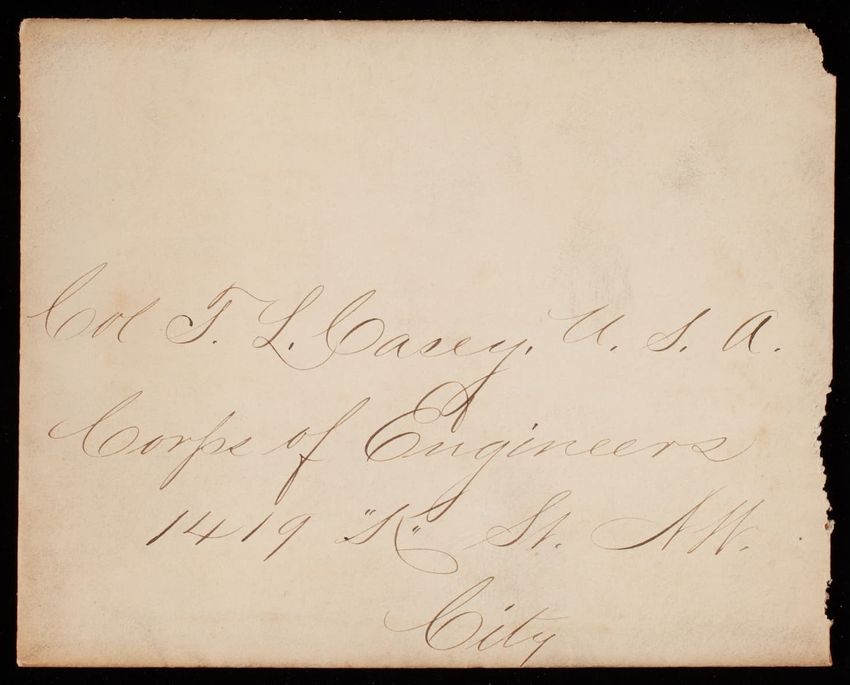 Col T. L. Casey, U. S. A.
Corps of Engineers
1419 "K" St. NW.
City